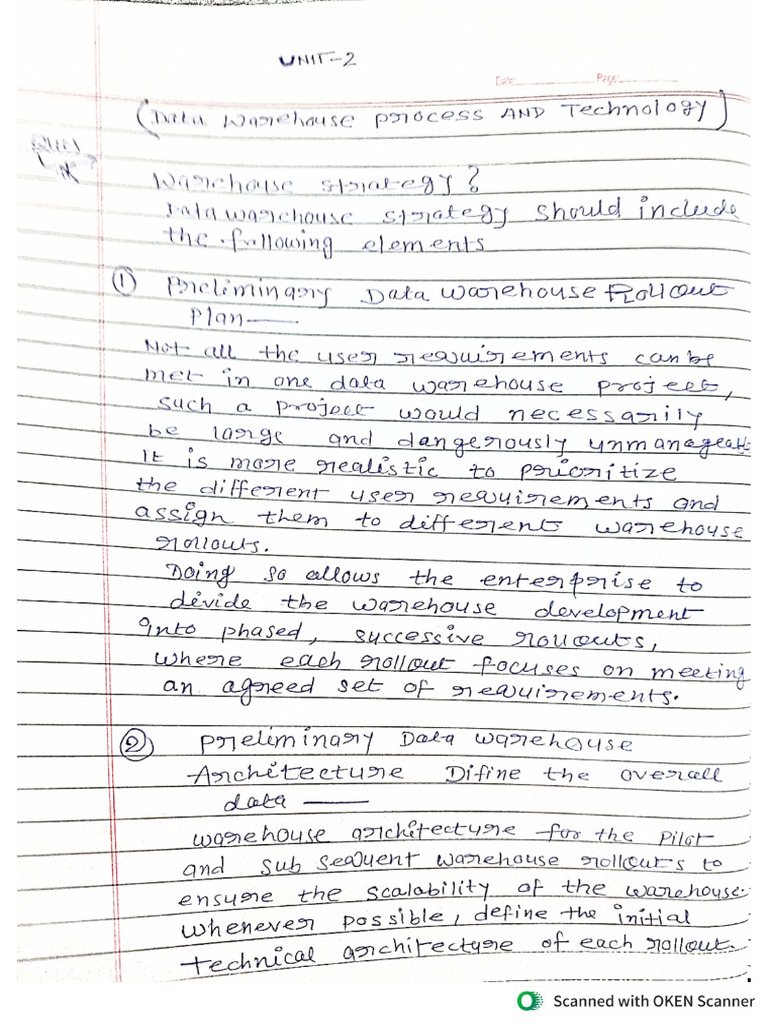 UNIT-2
Date: Page:
(Data Warehouse Process AND Technology)
Ques
Warehouse strategy?
Data warehouse strategy should include
the following elements
① Preliminary Data Warehouse Rollout
Plan—
Not all the user requirements can be
met in one data warehouse project,
such a project would necessarily
be large and dangerously unmanageable
It is more realistic to prioritize
the different user requirements and
assign them to different warehouse
rollouts.
Doing so allows the enterprise to
divide the warehouse development
into phased, successive rollouts,
where each rollout focuses on meeting
an agreed set of requirements.
② Preliminary Data Warehouse
Architecture Difine the overall
data —
warehouse architecture for the Pilot
and sub sequent warehouse rollouts to
ensure the scalability of the warehouse
whenever possible, define the initial
technical architecture of each rollout.
Scanned with OKEN Scanner